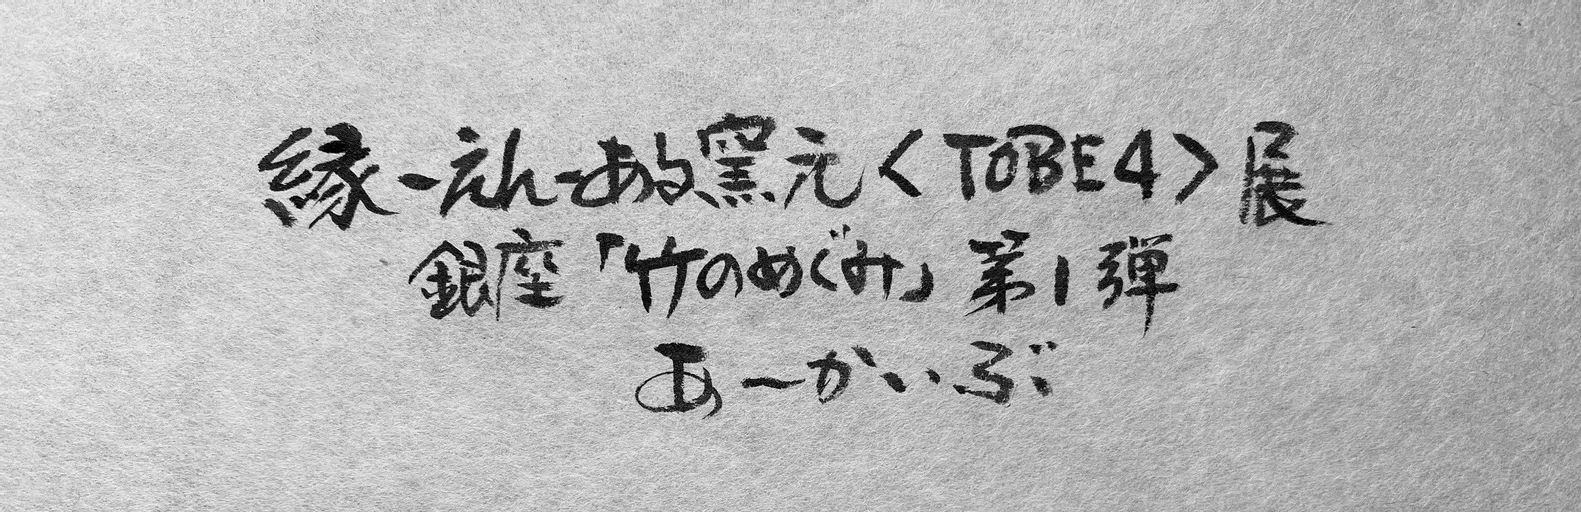 縁-えん-ある窯元<TOBE4>展
銀座「竹のめぐみ」第1弾
あーかいぶ